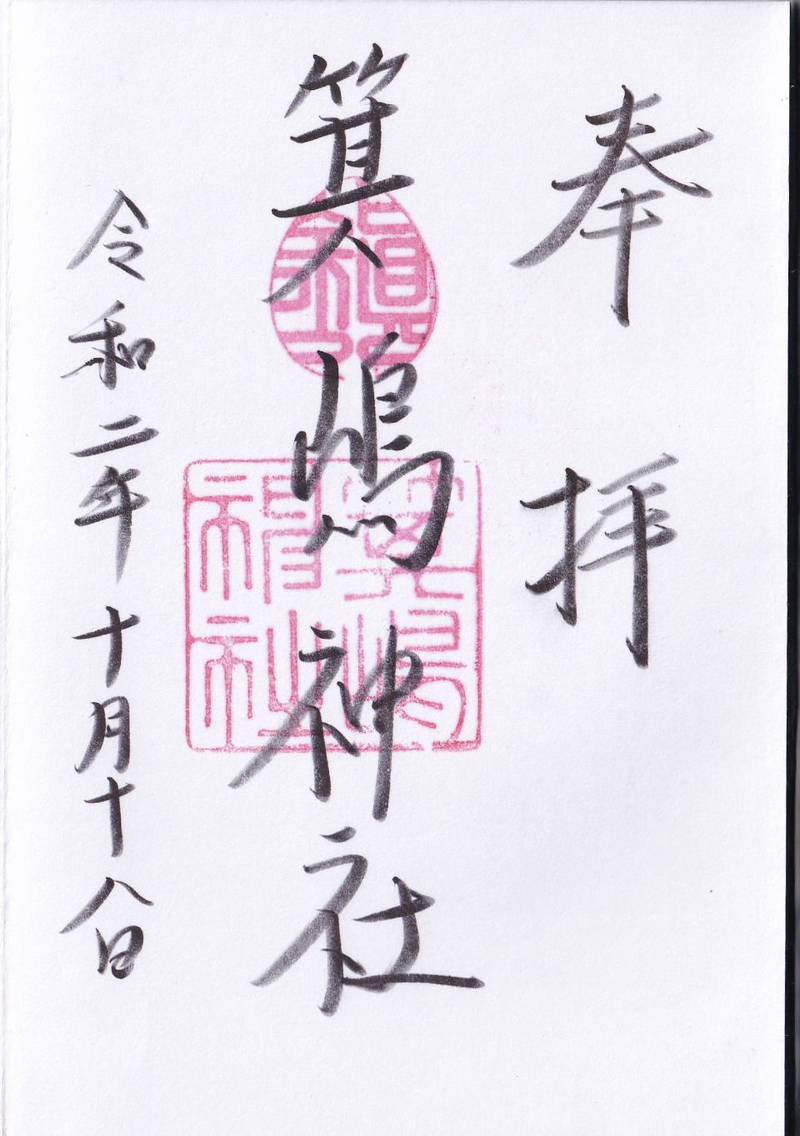 奉拝
箕嶋神社
箕嶋
神社
令和二年十月十八日